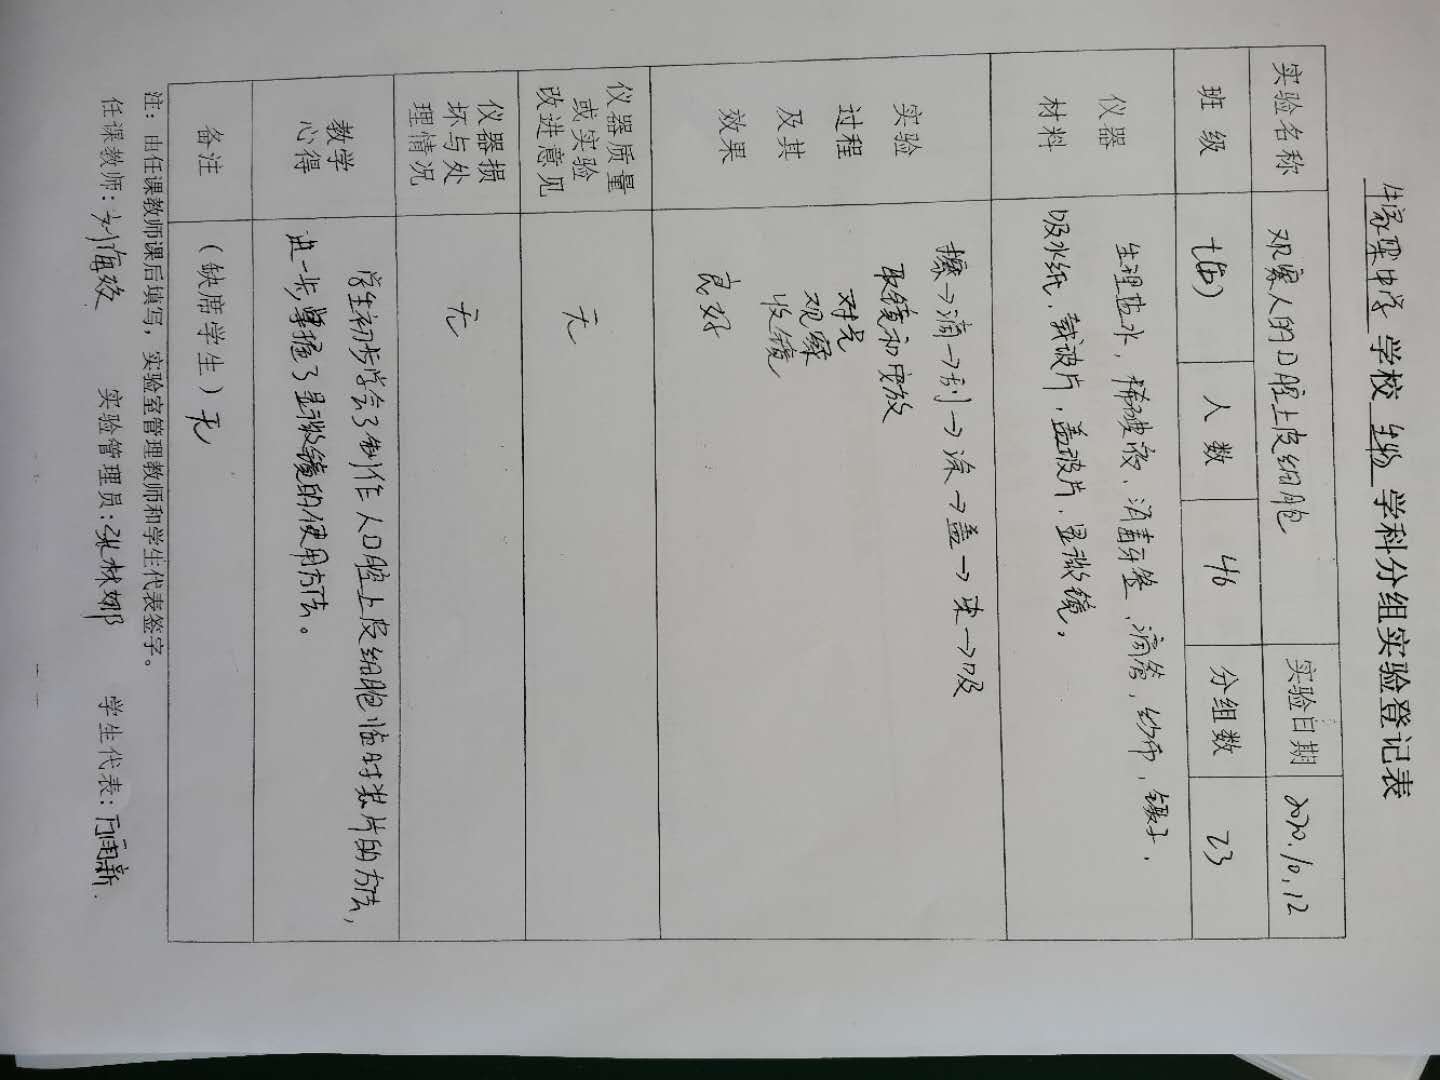 牛家梁中学 学校 生物 学科分组实验登记表
实验名称 观察人的口腔上皮细胞 实验日期 2020.10.12
班 级 七(5) 人 数 46 分组数 23
仪器
材料
生理盐水，稀碘液，消毒牙签，滴管，纱布，镊子，
吸水纸，载玻片，盖玻片，显微镜。
实验
过程
及其
效果
擦→滴→刮→涂→盖→染→吸
取镜和安放
对光
观察
收镜
良好
仪器质量
或实验
改进意见
无
仪器损
坏与处
理情况
无
教学
心得
学生初步学会了制作人口腔上皮细胞临时装片的方法，
进一步掌握了显微镜的使用方法。
备注 （缺席学生）无
注：由任课教师课后填写，实验室管理教师和学生代表签字。
任课教师：刘海姣 实验管理员：张林娜 学生代表：雨新